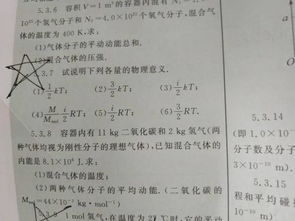 5.3.6 容积V=1 m³的容器内混有N₁=1.0×
10²⁵个氢气分子和N₂=4.0×10²⁵个氧气分子,混合气
体的温度为400 K,求:
(1)气体分子的平动动能总和.
(2)混合气体的压强.
5.3.7 试说明下列各量的物理意义.
(1) 1/2 kT; (2) 3/2 kT; (3) i/2 kT;
(4) M/Mmol i/2 RT; (5) i/2 RT; (6) 3/2 RT.
5.3.8 容器内有11 kg二氧化碳和2 kg氢气(两
种气体均视为刚性分子的理想气体),已知混合气体的
内能是8.1×10⁶ J.求:
(1)混合气体的温度;
(2)两种气体分子的平均动能.(二氧化碳的
Mmol=44×10⁻³ kg·mol⁻¹)
1 mol氢气,在温度为27 ℃时,它的平动
5.3.14
(即1.0×10
分子数及分子
3×10⁻¹⁰ m).
5.3.15
程和平均碰
10⁻¹⁰ m)